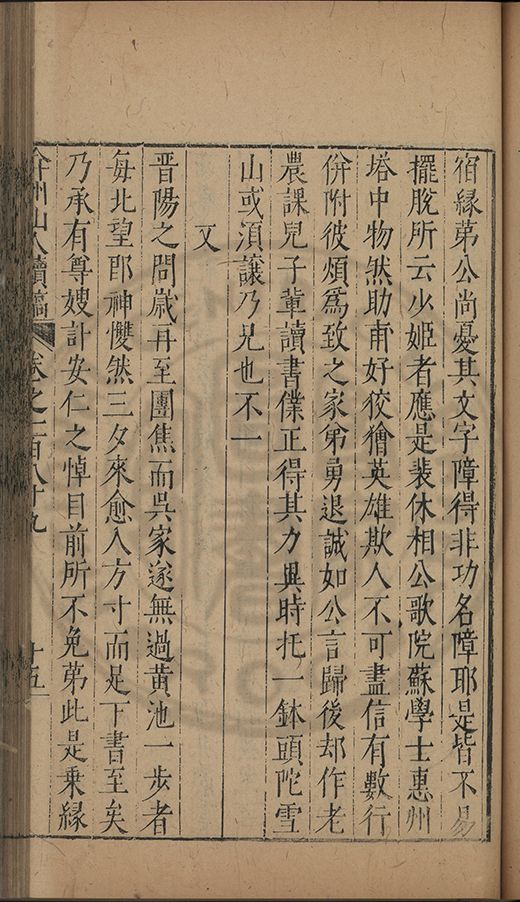 宿緣第公尚憂其文字障得非功名障耶是皆不易
擺脫所云少姬者應是裴休相公歌院蘇學士惠州
塔中物然助甫好狡獪英雄欺人不可盡信有數行
併附彼煩爲致之家弟勇退誠如公言歸後却作老
農課兒子輩讀書僕正得其力異時托一鉢頭陀雪
山或湏讓乃兄也不一
又
晋陽之問歲再至團焦而吳家遂無過黄池一步者
每北望郎神㦬然三夕來愈入方寸而是下書至矣
乃承有尊嫂計安仁之悼目前所不免第此是乗緣
弇州山人續稿
卷之一百八十九
十五